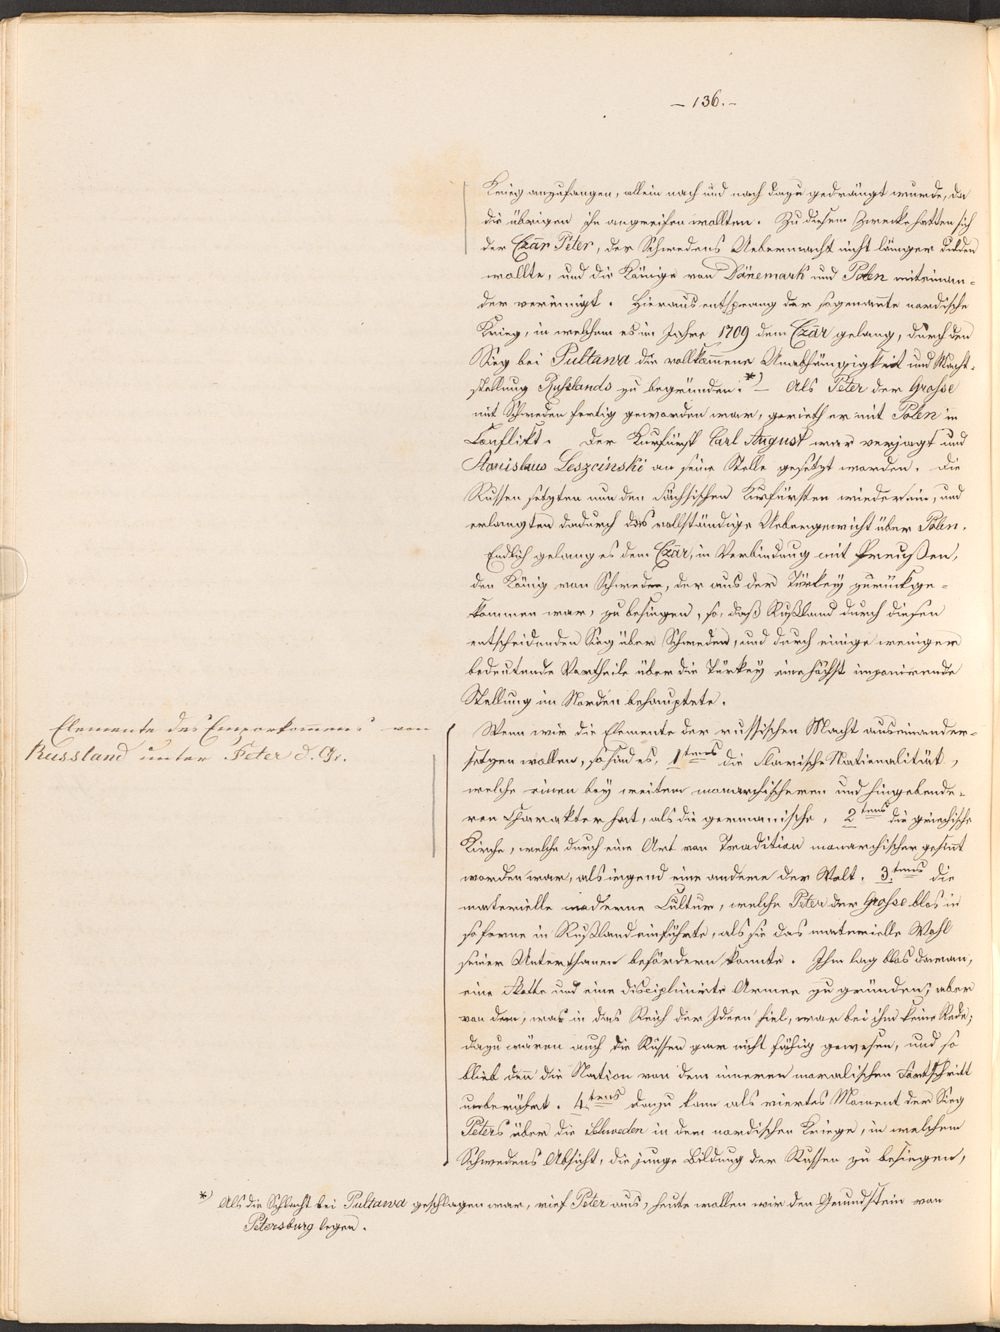 – 136. –
Krieg anzufangen, allein nach und nach dazu gedrängt wurde, da
die übrigen ihn angreifen wollten. Zu diesem Zwecke hatten sich
der Czar Peter, der Schwedens Uebermacht nicht länger dulden
wollte, und die Könige von Dänemark und Polen miteinan-
der vereinigt. Hieraus entsprang der sogenannte nordische
Krieg, in welchem es im Jahre 1709 dem Czar gelang, durch den
Sieg bei Pultawa die vollkom̅ene Unabhängigkeit und Macht-
stellung Russlands zu begründen.*) – Als Peter der Grosse
mit Schweden fertig geworden war, gerieth er mit Polen in
Conflikt. Der Kurfürst Carl August war verjagt und
Stanislaus Leszcinski an seine Stelle gesetzt worden. Die
Russen setzten nun den sächsischen Kurfürsten wieder ein, und
erlangten dadurch das vollständige Uebergewicht über Polen.
Endlich gelang es dem Czar, in Verbindung mit Preußen,
den König von Schweden, der aus der Türkey zurückge-
kommen war, zu besiegen, so, daß Rußland durch diesen
entscheidenden Sieg über Schweden, und durch einige weniger
bedeutende Vortheile über die Türkey eine höchst imponirende
Stellung im Norden behauptete.
Elemente des Emporkom̅ens von
Russland unter Peter d. Gr.
Wenn wir die Elemente der russischen Macht auseinander-
setzen wollen, so sind es, 1tens die slavische Nationalität,
welche einen bey weitem monarchischeren und hingebende-
ren Charakter hat, als die germanische, 2tens die griechische
Kirche, welche durch eine Art von Tradition monarchischer gesinnt
worden war, als irgend eine andere der Welt. 3.tens die
materielle moderne Cultur, welche Peter der Grosse blos in
soferne in Rußland einführte, als sie das materielle Wohl
seiner Unterthanen befördern konnte. Ihm lag blos daran,
eine Flotte und eine disciplinirte Armee zu gründen; aber
von dem, was in das Reich der Ideen fiel, war bei ihm keine Rede;
dazu wären auch die Russen gar nicht fähig gewesen, und so
blieb den̅ die Nation von dem inneren moralischen Fortschritt
unberührt. 4.tens dazu kam als viertes Moment der Sieg
Peters über die Schweden in dem nordischen Kriege, in welchem
Schwedens Absicht, die junge Bildung der Russen zu besiegen,
*) Als die Schlacht bei Pultawa geschlagen war, rief Peter aus, heute wollen wir den Grundstein von
Petersburg legen.